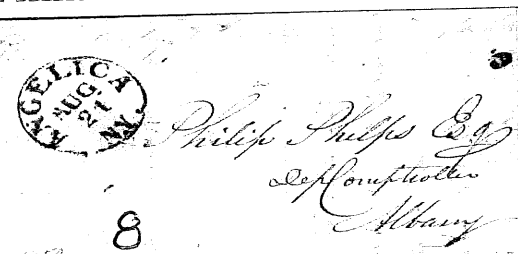 ANGELICA NY
AUG.
21
Philip Phelps Esq
Dep Comptroller
Albany
8